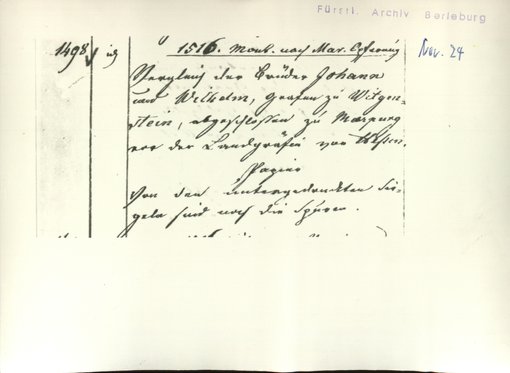 Fürstl. Archiv Berleburg
Nov. 24
1498
1516. Mont. nach Mar. Opferung
Vergleich der Brüder Johann
und Wilhelm, Grafen zu Witgen-
stein, abgeschlossen zu Marpurg
vor der Landgräfin von Hessen.
Papier
Von den untergedruckten Sie-
geln sind noch die Spuren.